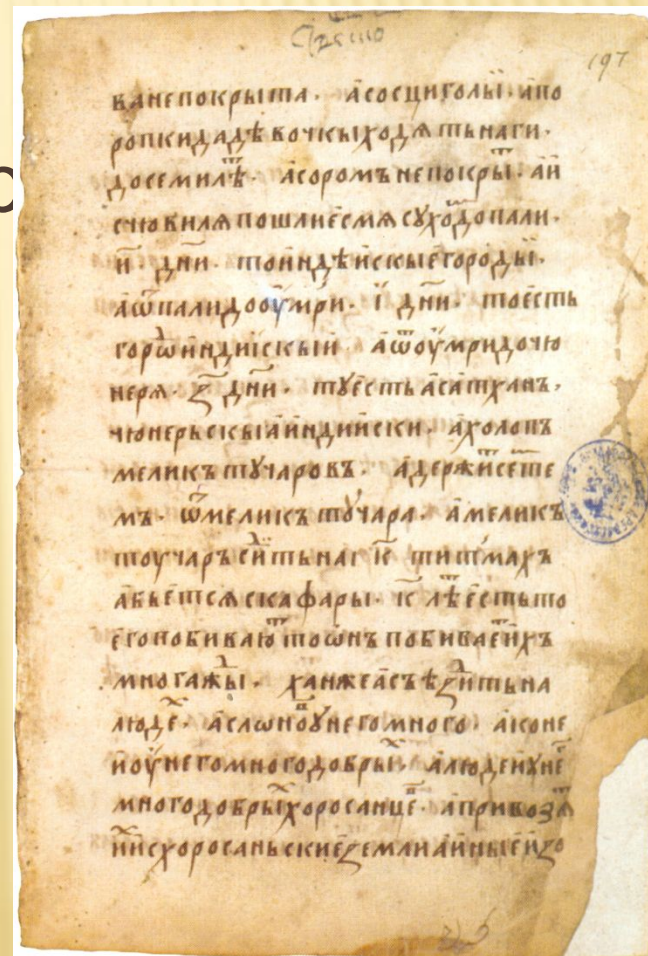 197
ванепокрыта. а҆сосциголы. а҆по
ропкидадѣвочкыходѧтьнаги.
доселилѣⷮ. а҆соромънепокрыⷮ. а҆и
счювилѧпошлиесмѧсухоⷣдопали.
и҃. дн҃и. тоиндѣискыегороды.
а҆ѿпалидооу҆мри. і҃ дн҃и. тоесть
гороⷣиндиискыи. а҆ѿоу҆мридочю
нерѧ. ꙁ҃ дн҃и. туестьа҆сатханъ.
чюнерьскыа҆индииски. а҆холопъ
меликътучаровъ. а҆держиⷮсеⷨте
мъ. ѿмеликътучара. а҆меликъ
тоучаръсѣдитьнаг҃ к҃ титмахъ
а҆бьетсѧскафары. к҃ лѣⷮестьто
егопобиваюⷮтоѡнъпобиваеⷮихъ
многажⷣы. ханжеасъѣꙁдитьна
людеⷯ. а҆слоноⷡ҇оу҆негомного. а҆коне
иоу҆негомногодобрыⷯ. а҆людеиунеⷢ҇
многодобрыⷯхоросанцеⷡ. а҆привозѧⷮ
ихⷯисхоросаньскиеꙁемлиа҆иныеиꙁо